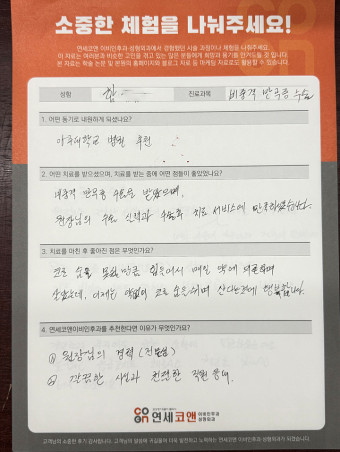 소중한 체험을 나눠주세요!
연세코앤 이비인후과·성형외과에서 경험했던 시술 과정이나 체험을 나눠주세요.
이 자료는 여러분과 비슷한 고민을 하고 있는 많은 분들에게 희망과 용기를 안겨드릴 것 입니다.
본 자료는 학술 논문 및 본원의 홈페이지와 블로그 자료 등 마케팅 자료로도 활용될 수 있습니다.
성함
진료과목 비중격 만곡증 수술
1. 어떤 동기로 내원하게 되셨나요?
아주대학교 병원 추천
2. 어떤 치료를 받으셨으며, 치료를 받는 중에 어떤 점들이 좋았었나요?
비중격 만곡증 수술을 받았으며,
원장님의 수술 실력과 수술후 치료 서비스에 만족하였습니다.
3. 치료를 마친 후 좋아진 점은 무엇인가요?
코로 숨을 못쉴만큼 심했어서 매일 약에 의존하며
살았는데, 이제는 양쪽의 코로 숨을 쉬며 산다는것에 행복합니다.
4. 연세코앤이비인후과를 추천한다면 이유가 무엇인가요?
① 원장님의 경력 (전문성)
② 깔끔한 시설과 친절한 직원 응대.
연세코앤 이비인후과 성형외과
고객님의 소중한 후기 감사합니다. 고객님의 말씀에 귀길울여 더욱 발전하고 노력하는 연세코앤 이비인후과·성형외과가 되겠습니다.